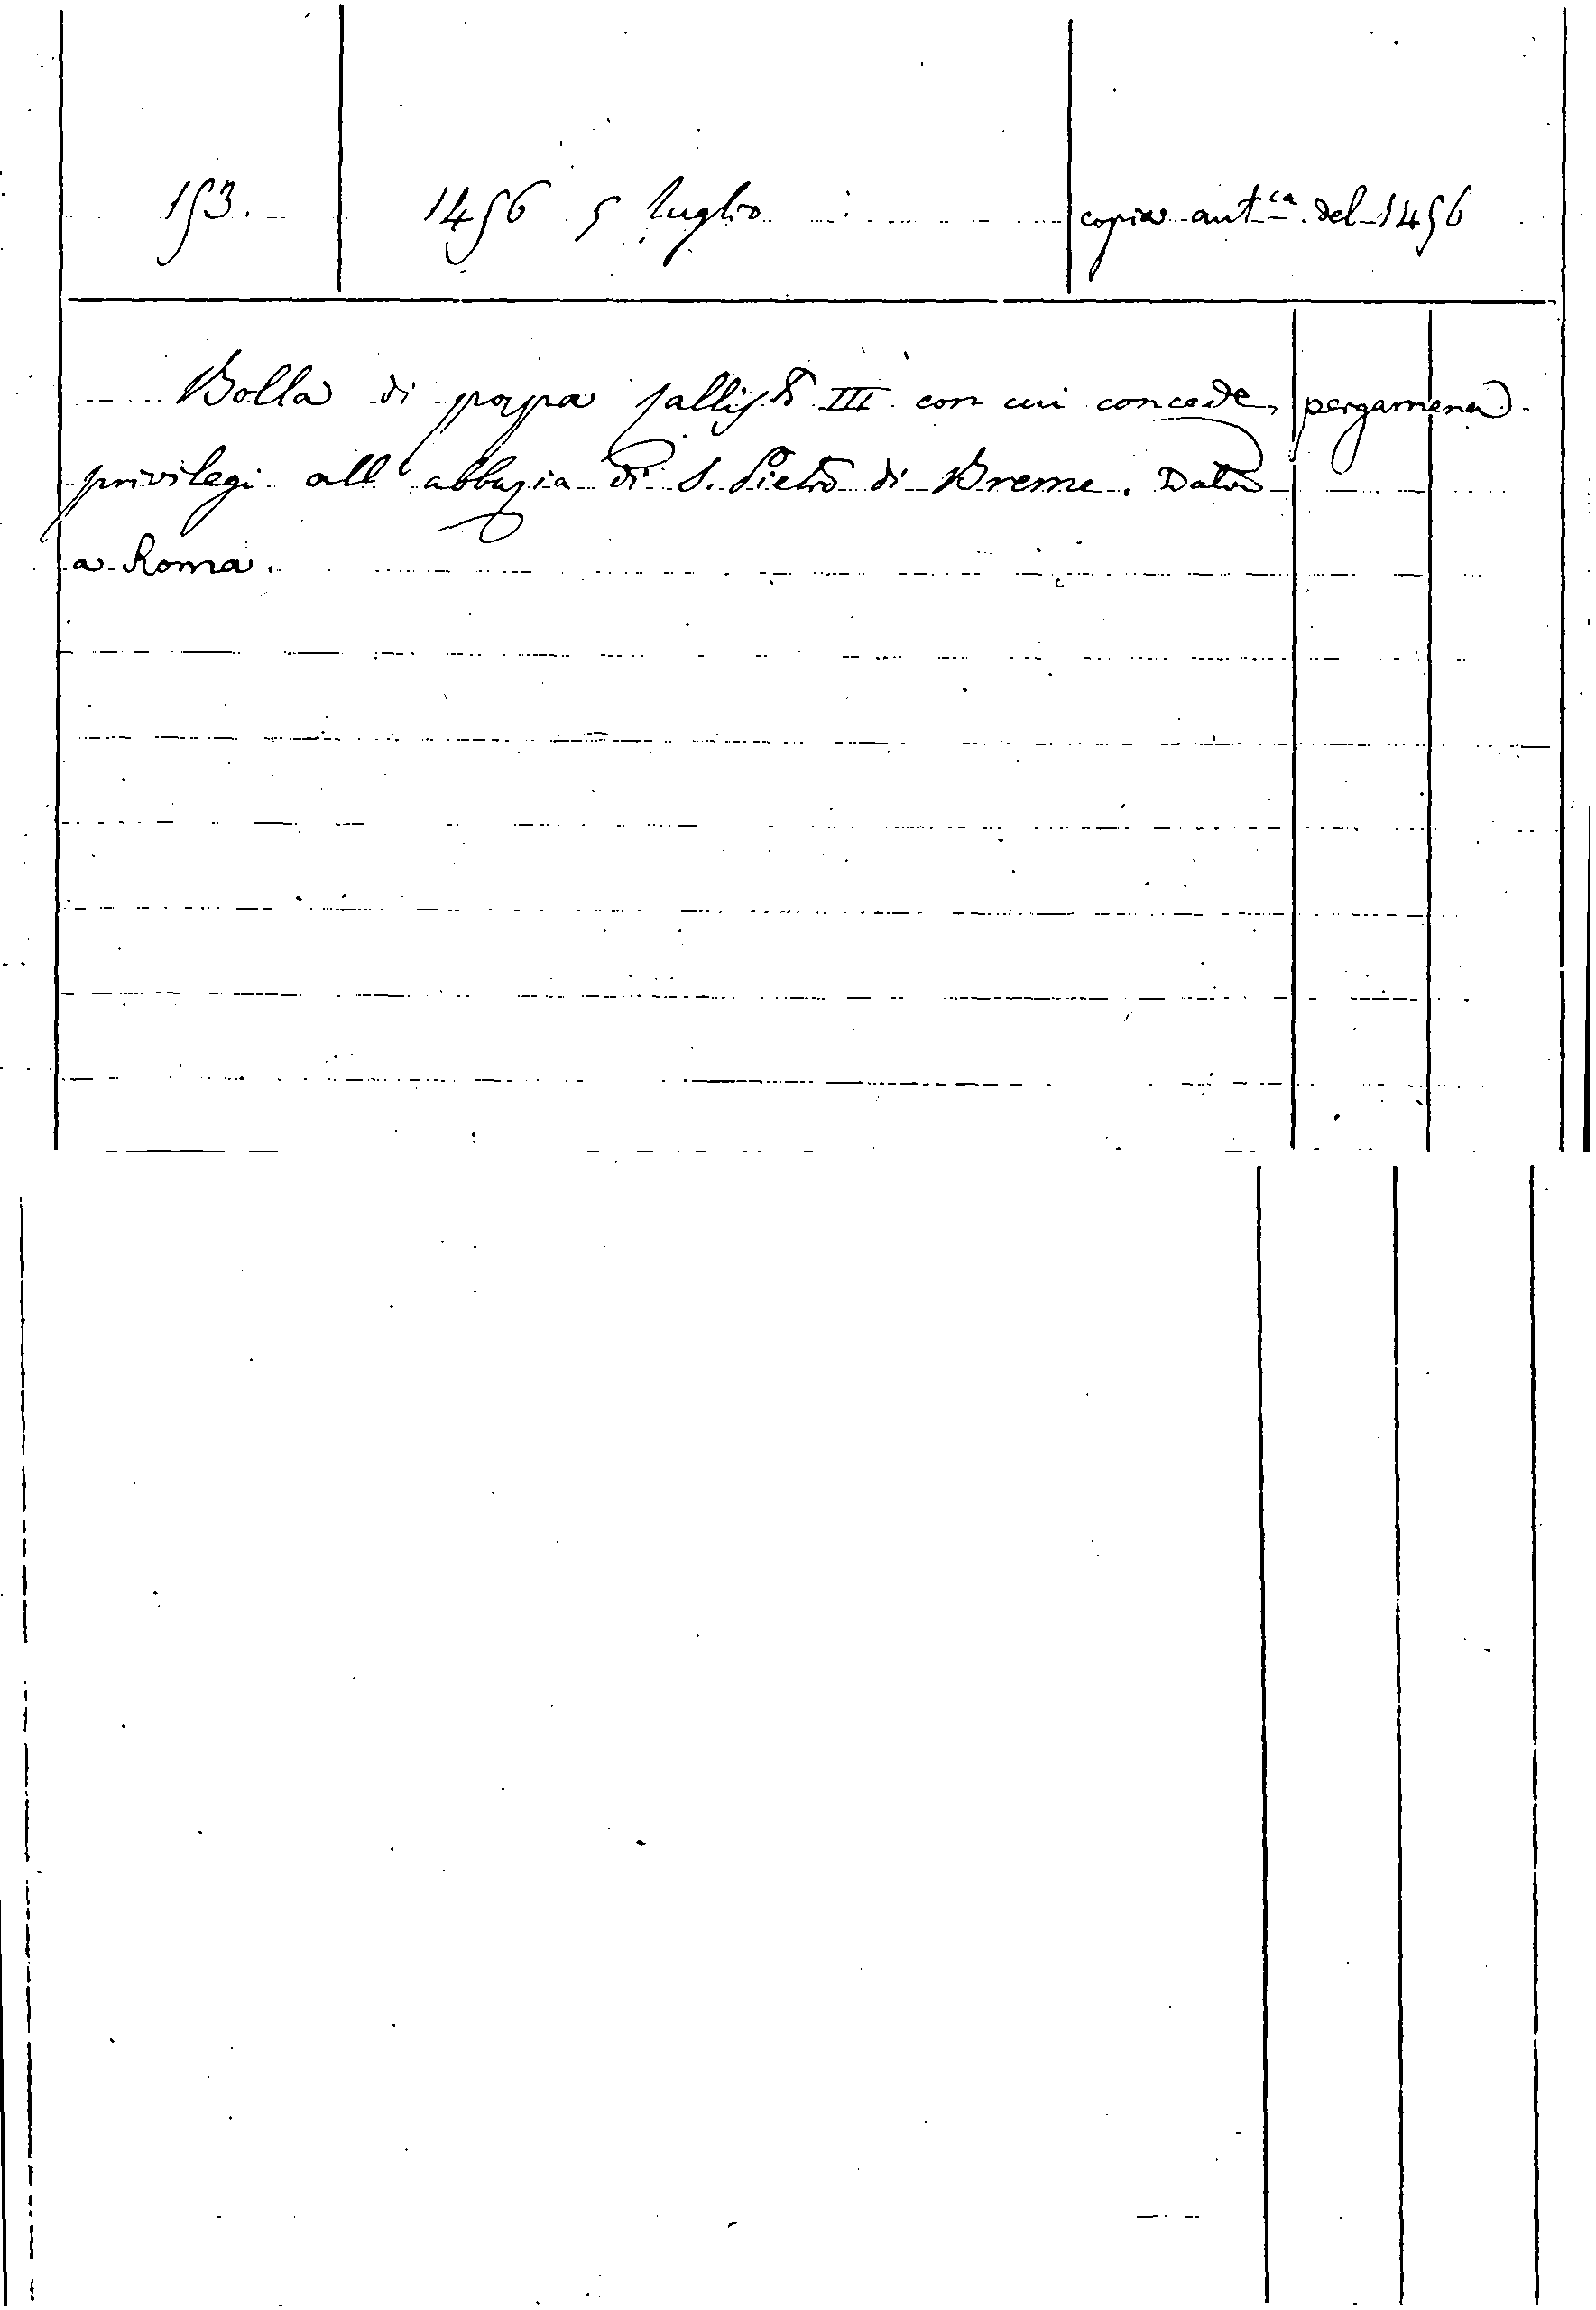 153. 1456 5 luglio copia aut.ca del 1456
Bolla di papa Callisto III con cui concede pergamena
privilegi all'abbazia di S. Pietro di Breme. Data
a Roma.